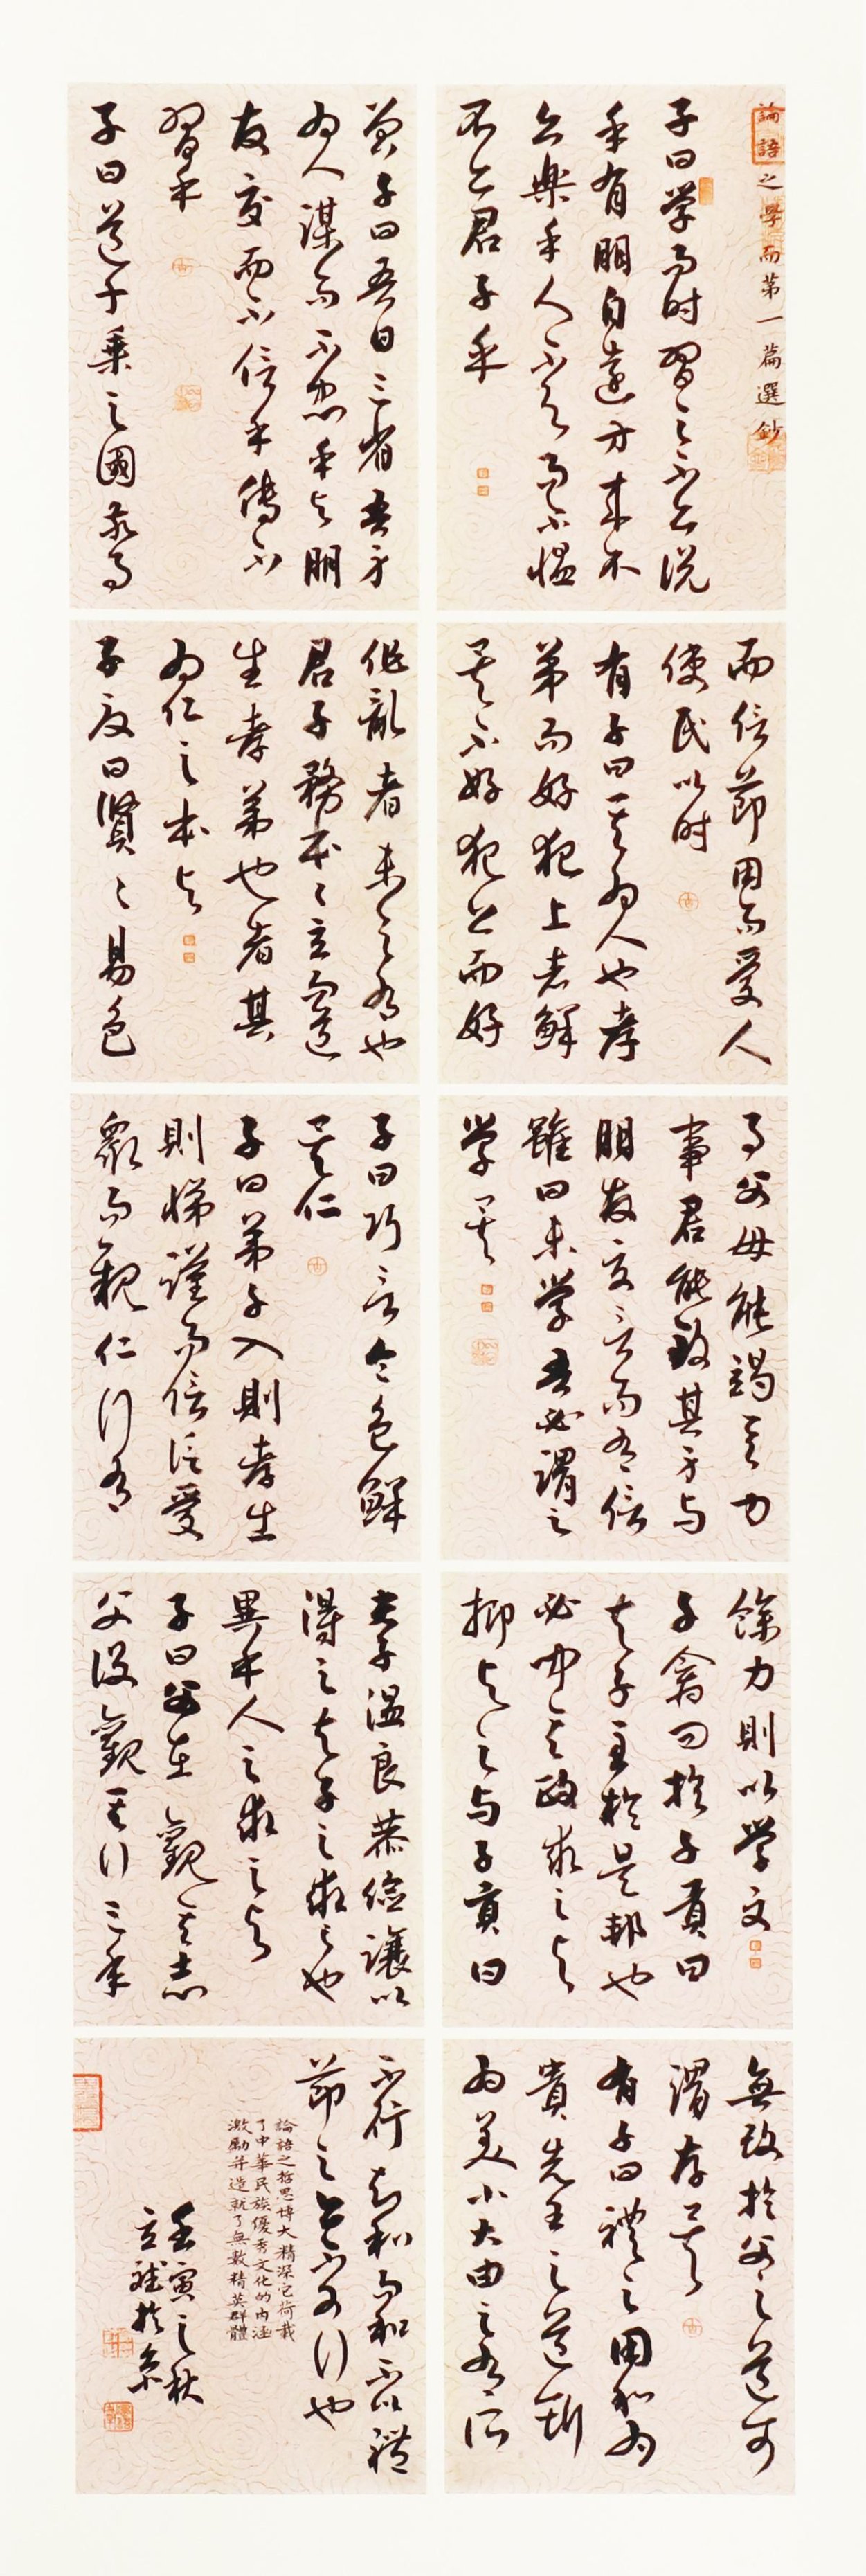 論語之學而第一篇選鈔
子曰学而时習之不亦说
乎有朋自遠方来不
亦樂乎人不知而不愠
不亦君子乎
曾子曰吾日三省吾身
为人谋而不忠乎与朋
友交而不信乎傳不
習乎
子曰道千乗之國敬事
而信節用而愛人
使民以时
有子曰其为人也孝
弟而好犯上者鮮
矣不好犯上而好
作亂者未之有也
君子務本々立而道
生孝弟也者其
为仁之本与
子夏曰賢々易色
事父母能竭其力
事君能致其身与
朋友交言而有信
雖曰未学吾必謂之
学矣
子曰巧言令色鮮
矣仁
子曰弟子入則孝出
則悌謹而信汎愛
衆而親仁行有
餘力則以学文
子禽问於子貢曰
夫子至於是邦也
必聞其政求之与
抑与之与子貢曰
夫子温良恭儉讓以
得之夫子之求之也
異乎人之求之与
子曰父在觀其志
父没觀其行三年
無改於父之道可
謂孝矣
有子曰禮之用和为
貴先王之道斯
为美小大由之有所
不行知和而和不以禮
節之亦不可行也
論語之哲思博大精深它荷載
了中華民族優秀文化的内涵
激勵并造就了無數精英群體
壬寅之秋
立斌於京